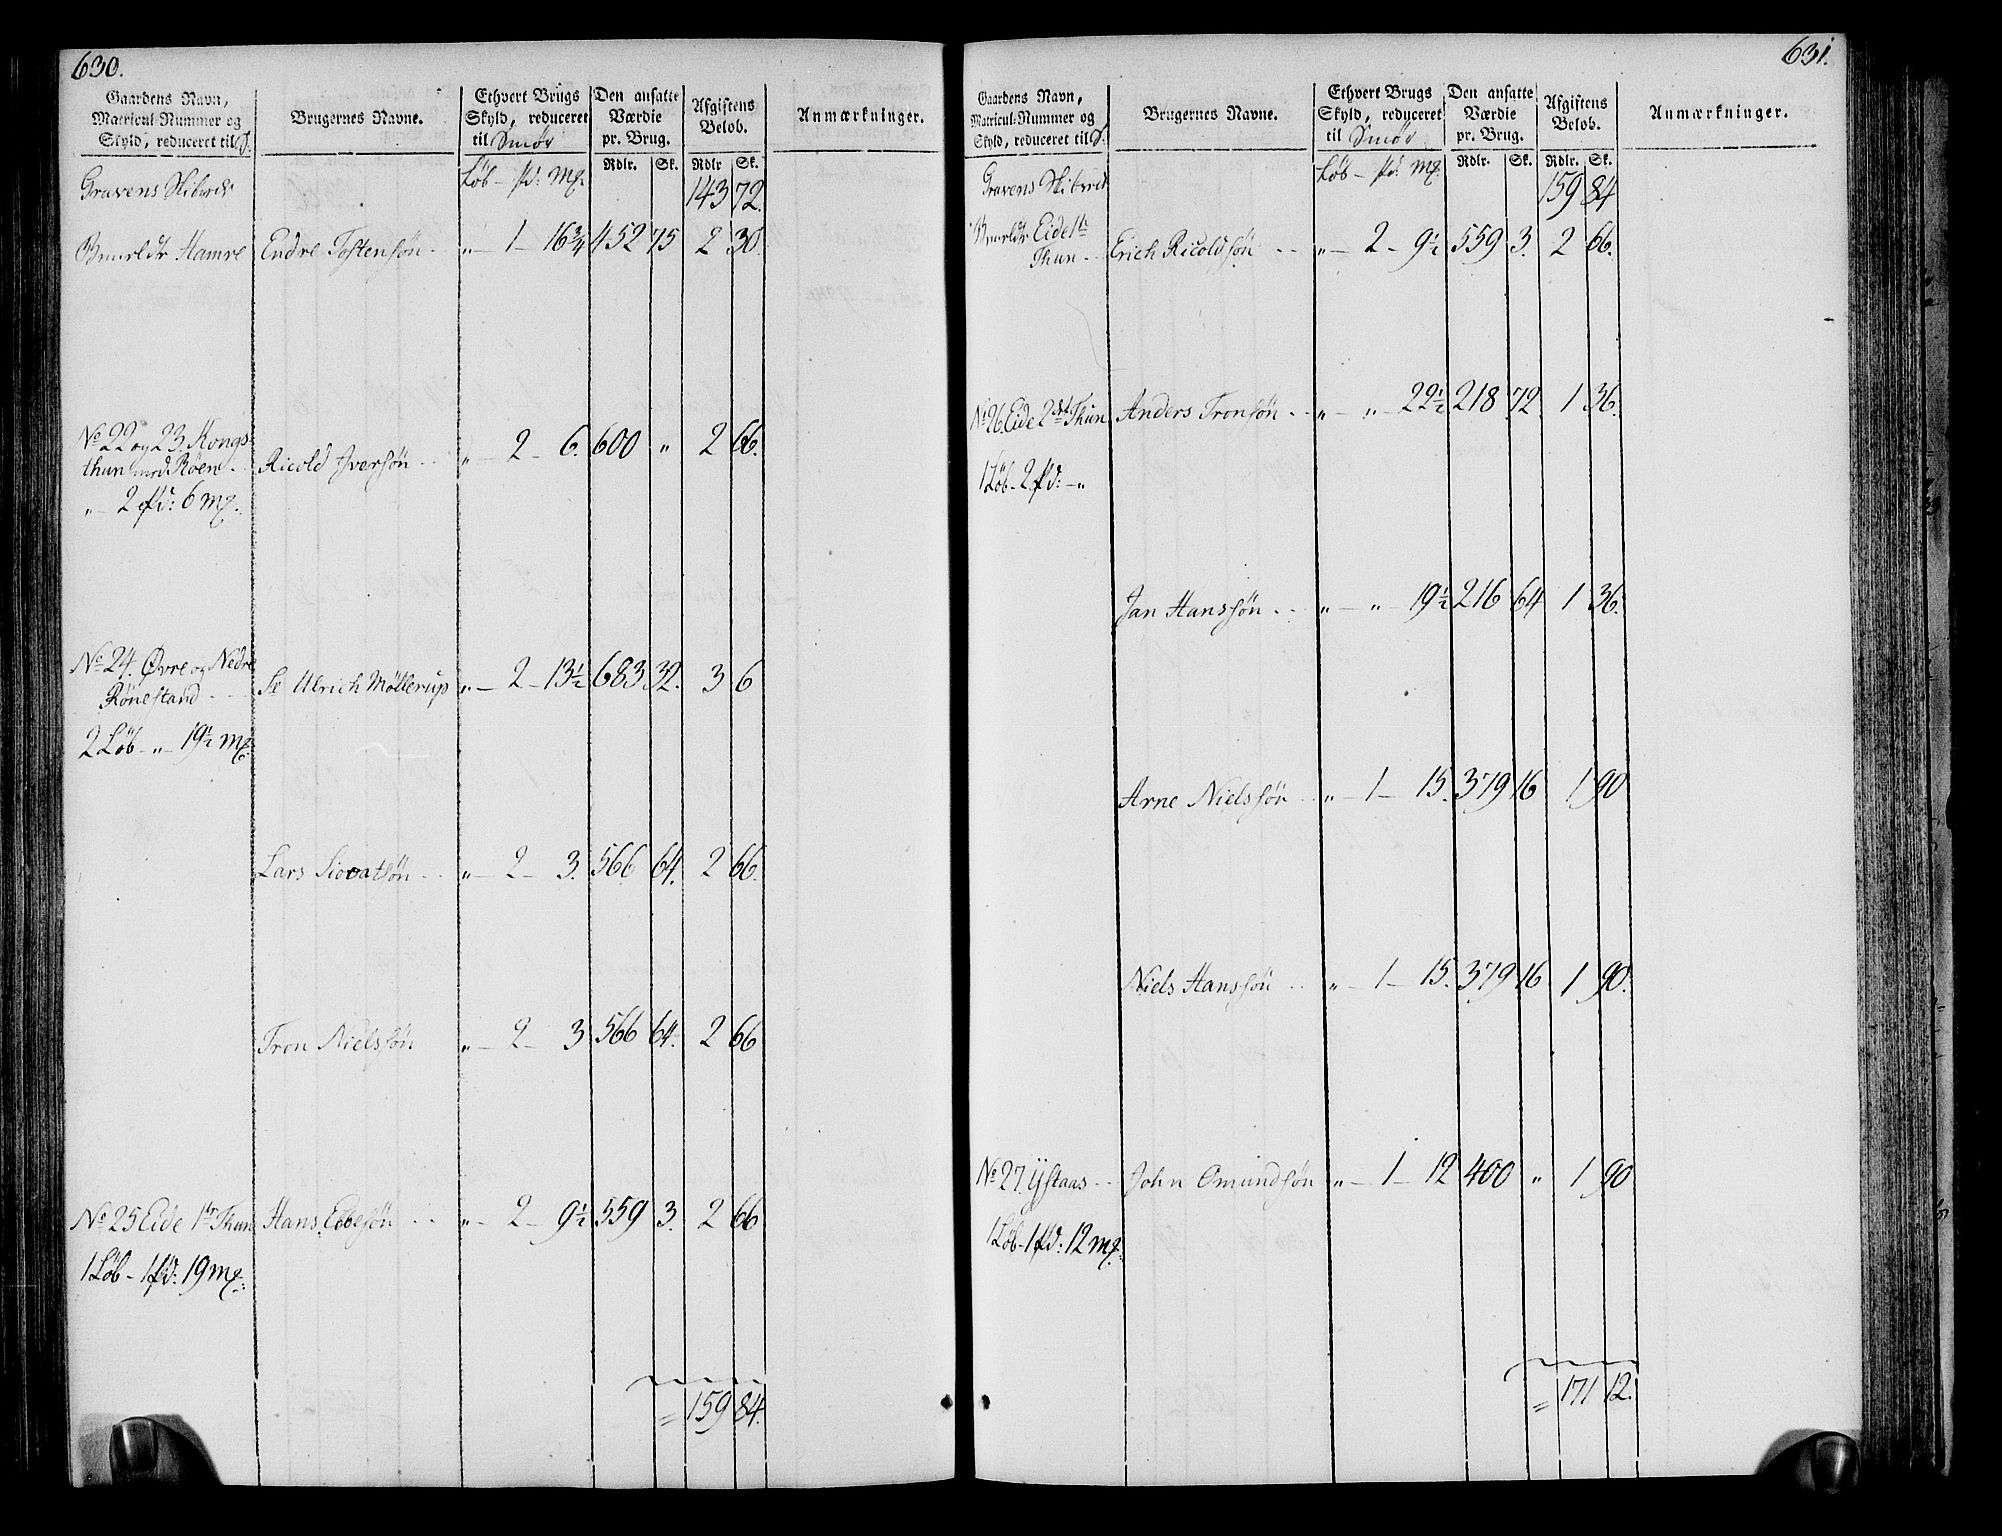 630.
Gaardens Navn,
Matricul-Nummer og
Skyld, reduceret til S.
Brugernes Navne.
Ethvert Brugs
Skyld, reduceret
til Smør
Den ansatte
Værdie
pr. Brug.
Afgiftens
Beløb.
Anmærkninger.
Rdlr. Sk. Rdlr Sk.
Gravens Skibrede Løb - pd: mg. 143 72.
Hamre Endre Tostensøn „ - 1 - 16 3/4 452 75 2 30.
No 22 og 23. Kongs-
thun med Røen Ricold Iversøn „ - 2 - 6. 600 „ 2 66.
„ - 2 pd: 6 mg.
No 24. Øvre og Nedre
Rønestand Sr Ulrich Møllerup „ - 2 - 13 1/2 683 32. 3 6
2 Løb - „ - 19 1/2 mg.
Lars Siovatsøn „ - 2 - 3. 566 64. 2 66.
Tron Nielssøn „ - 2 - 3 566 64. 2 66
No 25 Eide 1ste Thun Hans Ebbesøn „ - 2 - 9 1/2 559 3. 2 66
1 Løb - 1 pd: 19 mg.
= 159 84.
631.
Gaardens Navn,
Matricul-Nummer og
Skyld, reduceret til S.
Brugernes Navne.
Ethvert Brugs
Skyld, reduceret
til Smør
Den ansatte
Værdie
pr. Brug.
Afgiftens
Beløb.
Anmærkninger.
Rdlr. Sk. Rdlr. Sk.
Gravens Skibrede Løb - pd: mg. 159 84
Eide 1ste
Thun Erich Ricoldsøn „ - 2 - 9 1/2 559 3. 2 66.
No 26. Eide 2det Thun Anders Tronsøn „ - „ 22 1/2 218 72 1 36.
1 Løb - 2 pd: - „
Jan Hanssøn „ - „ - 19 1/2 216 64 1 36.
Arne Nielssøn „ - 1 - 15. 379 16 1 90
Niels Hanssøn „ - 1 - 15. 379 16 1 90.
No 27. Ystaas John Omundsøn „ - 1 - 12 400 „ 1 90
1 Løb - 1 pd: 12 mg.
= 171 12.